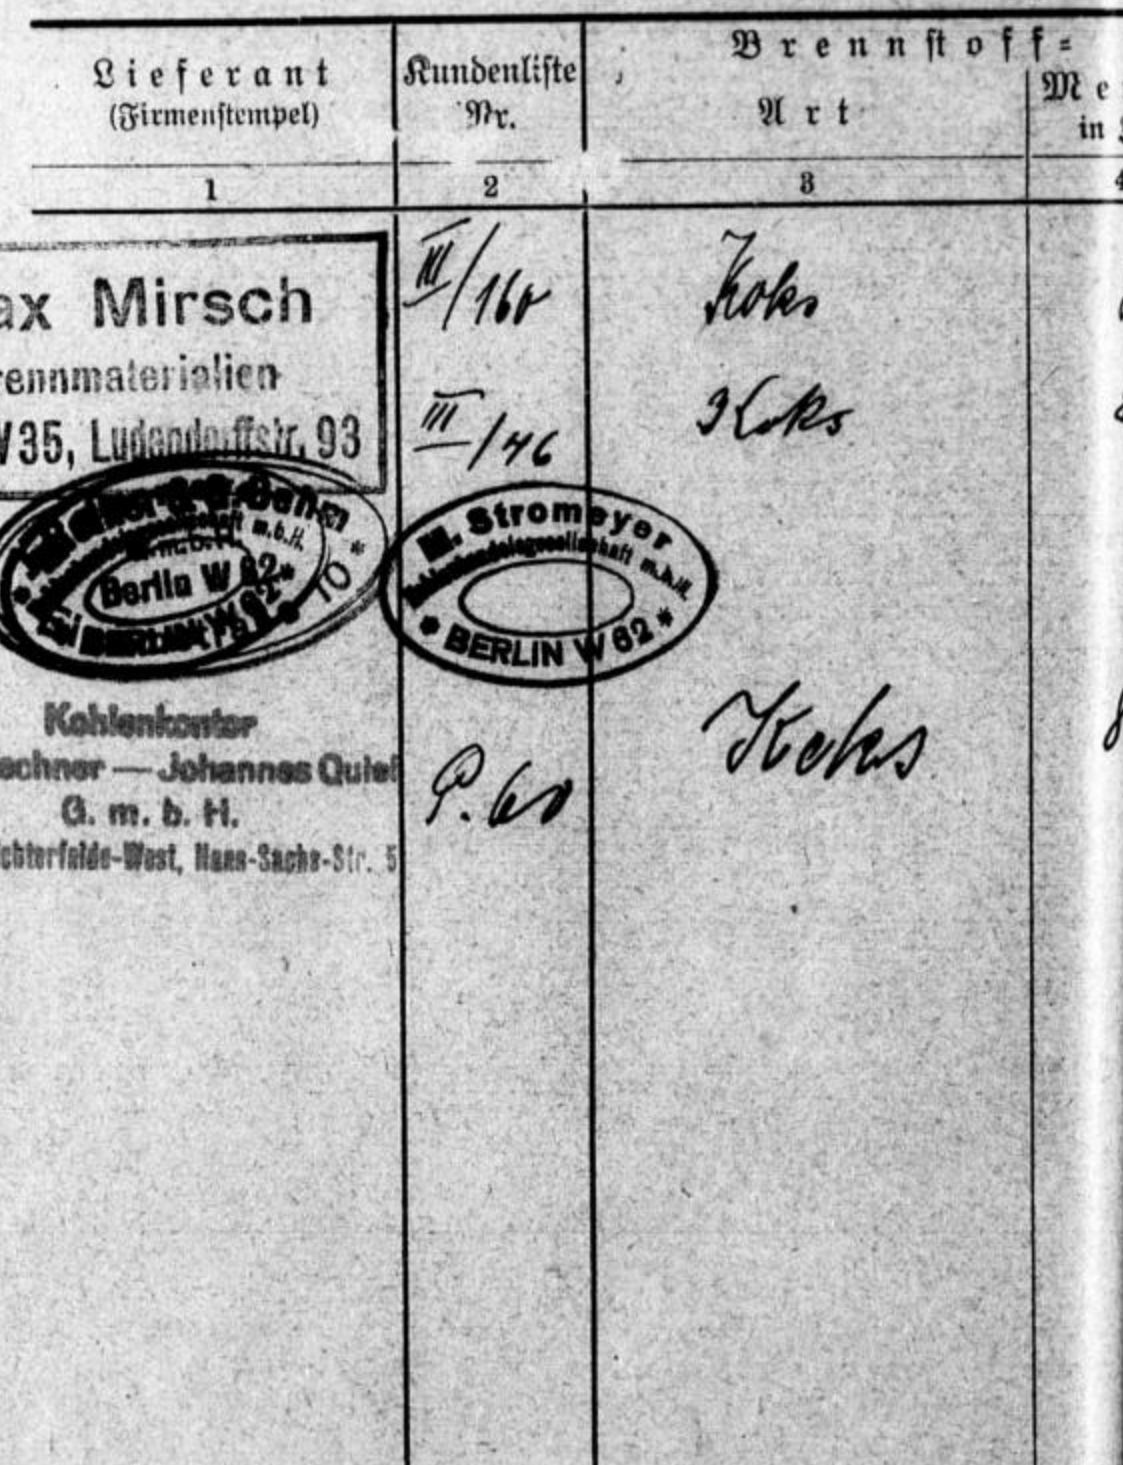 Lieferant
(Firmenstempel)
Kundenliste
Nr.
Brennstoff=
Art
Me
in
1
2
3
4
ax Mirsch
rennmaterialien
W35, Ludendorffstr. 93
III/160
Koks
III/46
Koks
Berlin W 62
BERLIN W 62
10
M. Stromeyer
Kohlenhandelsgesellschaft m.b.H.
* BERLIN W 62 *
Kohlenkontor
echner — Johannes
G. m. b. H.
ichterfelde-West, Hans-Sachs-Str. 5
P. 60
Koks